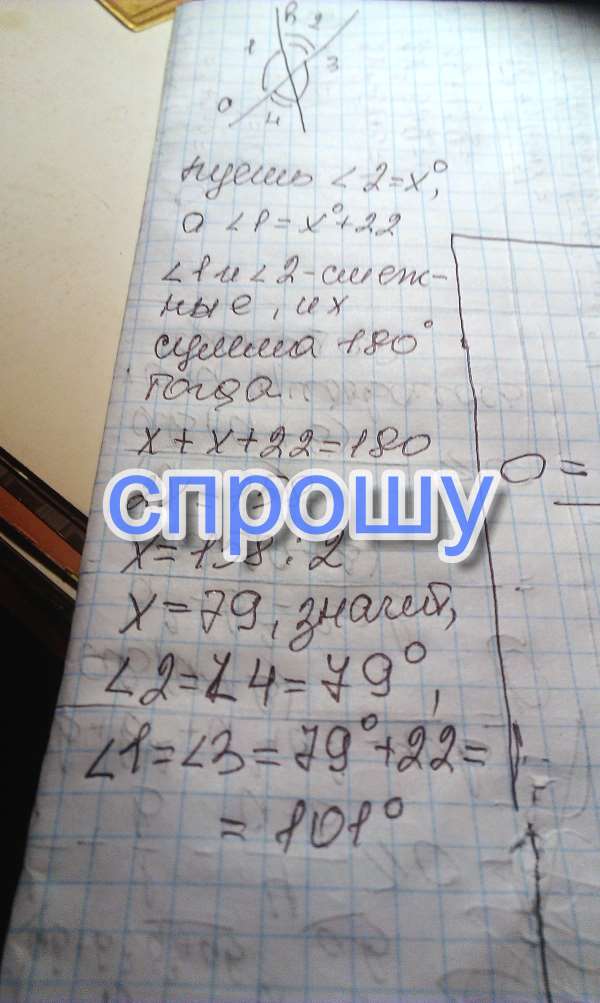 в 2
1 3
а
4
пусть ∠2=x°,
а ∠1=x°+22
∠1 и ∠2-смеж-
ные, их
сумма 180°
тогда
x+x+22=180
спрошу
x=158:2
x=79, значит,
∠2=∠4=79°,
∠1=∠3=79°+22=
=101°
0=